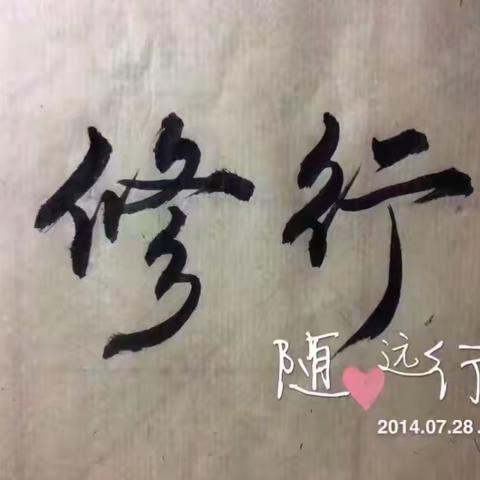 修行
随远行
2014.07.28.